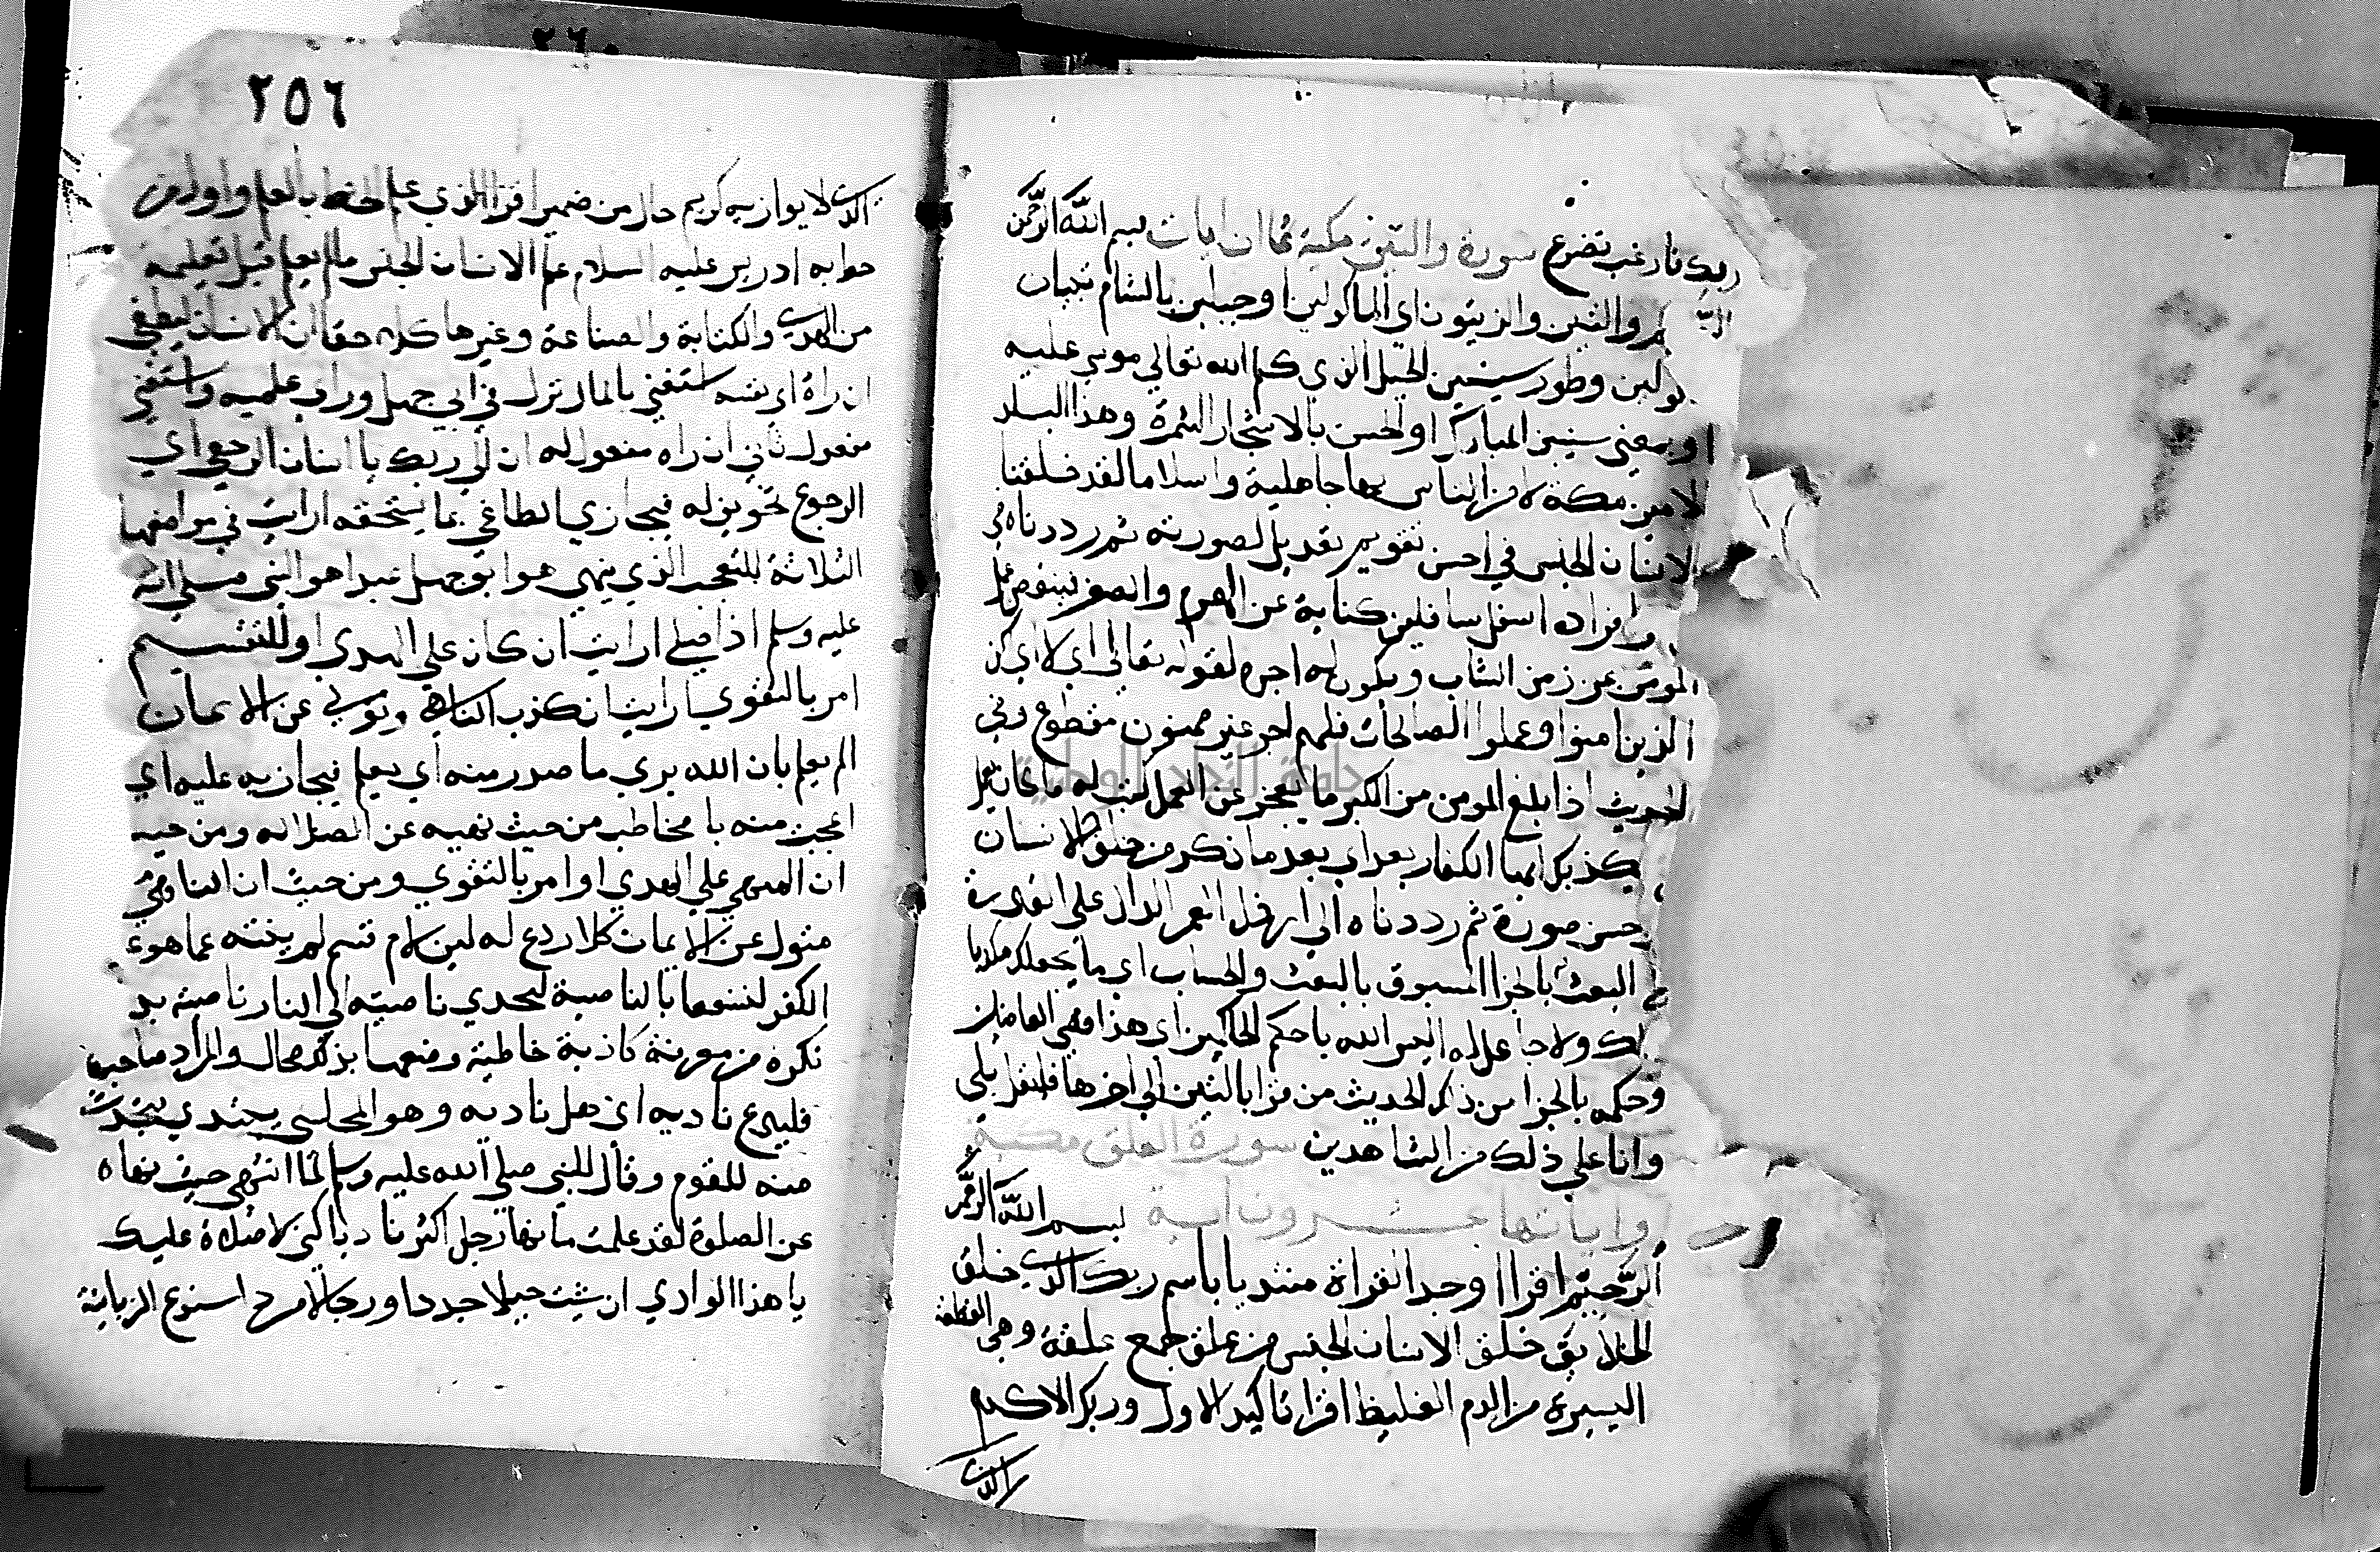 ربك فارغب تضرع سورة والتين مكية ثمان ايات بسم الله الرحمن
والتين والزيتون اي الماكولين او جبلين بالشام ينبتان
كولين وطور سينين الجبل الذي كلم الله تعالي موسي عليه
او بمعني سينين المبارك او الحسن بالاشجار المثمرة وهذا البلد
الامين مكة لامن الناس بها جاهلية واسلاما لقد خلقنا
الانسان الجنس في احسن تقويم تعديل لصورته ثم رددناه في
افراده اسفل سافلين كناية عن الهرم والضعف فينقص عمل
المومن عن زمن الشاب ويكون له اجره لقوله تعالي الا اي لكن
الذين امنوا وعملوا الصالحات فلهم اجر غير ممنون مقطوع وفي
الحديث اذا بلغ المومن من الكبر ما يعجز عن العمل كتب له ما كان يعمل
يكذبك ايها الكافر بعد اي بعد ما ذكر من خلق الانسان
حسن صورة ثم رددناه الي ارذل العمر الدال علي القدرة
البعث بالجزا المسبوق بالبعث والحساب اي ما يجعلك مكذبا
لك ولا جاعل له اليس الله باحكم الحاكمين اي هذا قضي القاضين
وحكمه بالجزا من ذكر الحديث من قرا بالتين الي اخرها فليقل بلي
وانا علي ذلك من الشاهدين سورة العلق مكية
واياتها عشرون اية بسم الله الرحمن
الرحيم اقرا اوجد القراة مبتديا باسم ربك الذي خلق
الخلايق خلق الانسان الجنس من علق جمع علقة وهي القطعة
اليسيرة من الدم الغليظ اقرا تاكيد للاول وربك الاكرم
الذي
٢٥٦
الذي لا يوازيه كريم حال من ضمير اقرا الذي علم الخط بالقلم واول من
خط به ادريس عليه السلام علم الانسان الجنس ما لم يعلم قبل تعليمه
من الهدي والكتابة والصناعة وغيرها كلا حقا ان الانسان ليطغي
ان راه اي نفسه استغني بالمال نزل في ابي جهل وراي علمية واستغني
مفعول ثاني ان راه مفعول له ان الي ربك يا انسان الرجعي اي
الرجوع تخويف له فيجازي الطاغي بما يستحقه ارايت في مواضعها
الثلاثة للتعجب الذي ينهي هو ابو جهل عبدا هو النبي صلي الله
عليه وسلم اذا صلي ارايت ان كان علي الهدي او للتقسيم
امر بالتقوي ارايت ان كذب الناهي وتولي عن الايمان
الم يعلم بان الله يري ما صدر منه اي يعلم فيجازيه عليه اي
اعجب منه يا مخاطب من حيث نهيه عن الصلاة ومن حيث
ان المنهي علي الهدي او امر بالتقوي ومن حيث ان الناهي
متول عن الايمان كلا ردع له لين لام قسم لم ينته عما هو
الكفر لنسفعا بالناصية لنجذبن ناصيته الي النار ناصية بدل
نكرة من معرفة كاذبة خاطية وصفها بذلك مجاز والمراد صاحبها
فليدع ناديه اي اهل ناديه وهو المجلس ينتدي يتحدث
منه للقوم وقال للنبي صلي الله عليه وسلم لما انتهي حيث نهاه
عن الصلوة لقد علمت ما بها رجل اكثر ناديا مني لاملان عليك
يا هذا الوادي ان شيت خيلا جردا ورجالا مردا سندع الزبانية